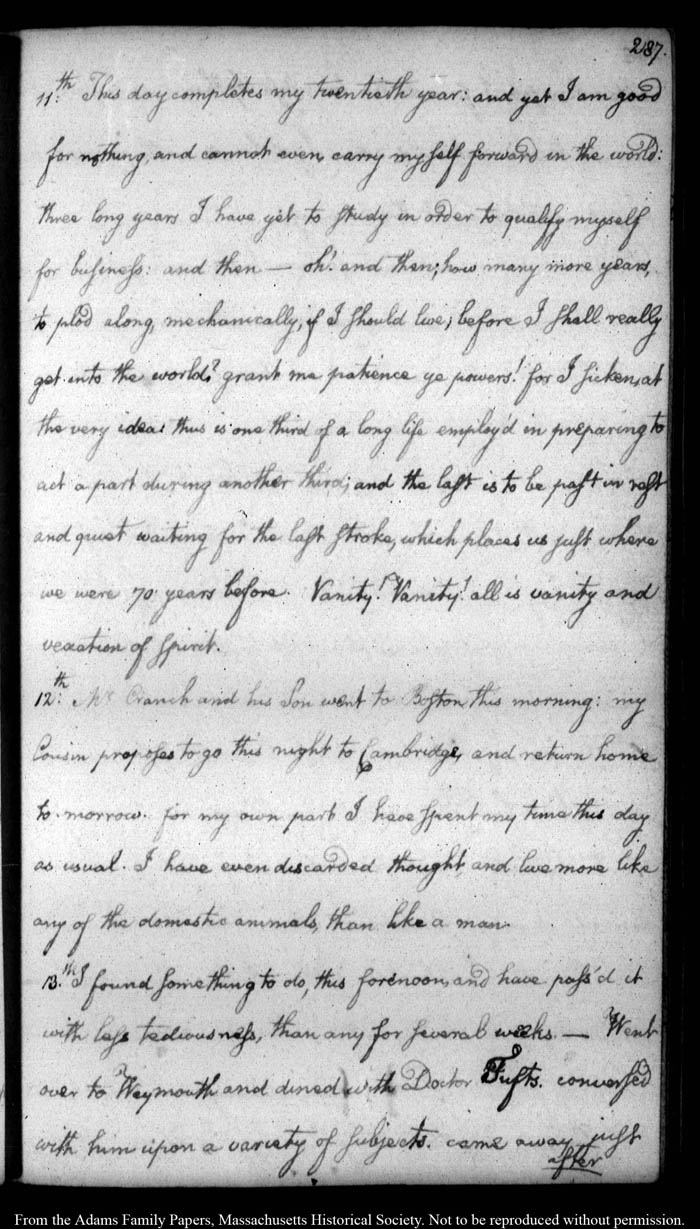 287.
11.th This day completes my twentieth year: and yet I am good
for nothing, and cannot even carry myself forward in the world:
three long years I have yet to study in order to qualify myself
for business: and then — oh! and then; how many more years,
to plod along, mechanically, if I should live; before I shall really
get into the world? grant me patience ye powers! for I sicken, at
the very idea: thus is one third of a long life employ'd in preparing to
act a part during another third; and the last is to be past in rest
and quiet waiting for the last stroke, which places us just where
we were 70 years before. Vanity! Vanity! all is vanity and
vexation of spirit.
12.th Mr. Cranch and his Son went to Boston this morning: my
Cousin proposes to go this night to Cambridge, and return home
to-morrow. for my own part I have spent my time this day
as usual. I have even discarded thought and live more like
any of the domestic animals, than like a man.
13.th I found something to do, this forenoon, and have pass'd it
with less tediousness, than any for several weeks. — Went
over to Weymouth and dined with Doctor Tufts. conversed
with him upon a variety of subjects. came away just
after
From the Adams Family Papers, Massachusetts Historical Society. Not to be reproduced without permission